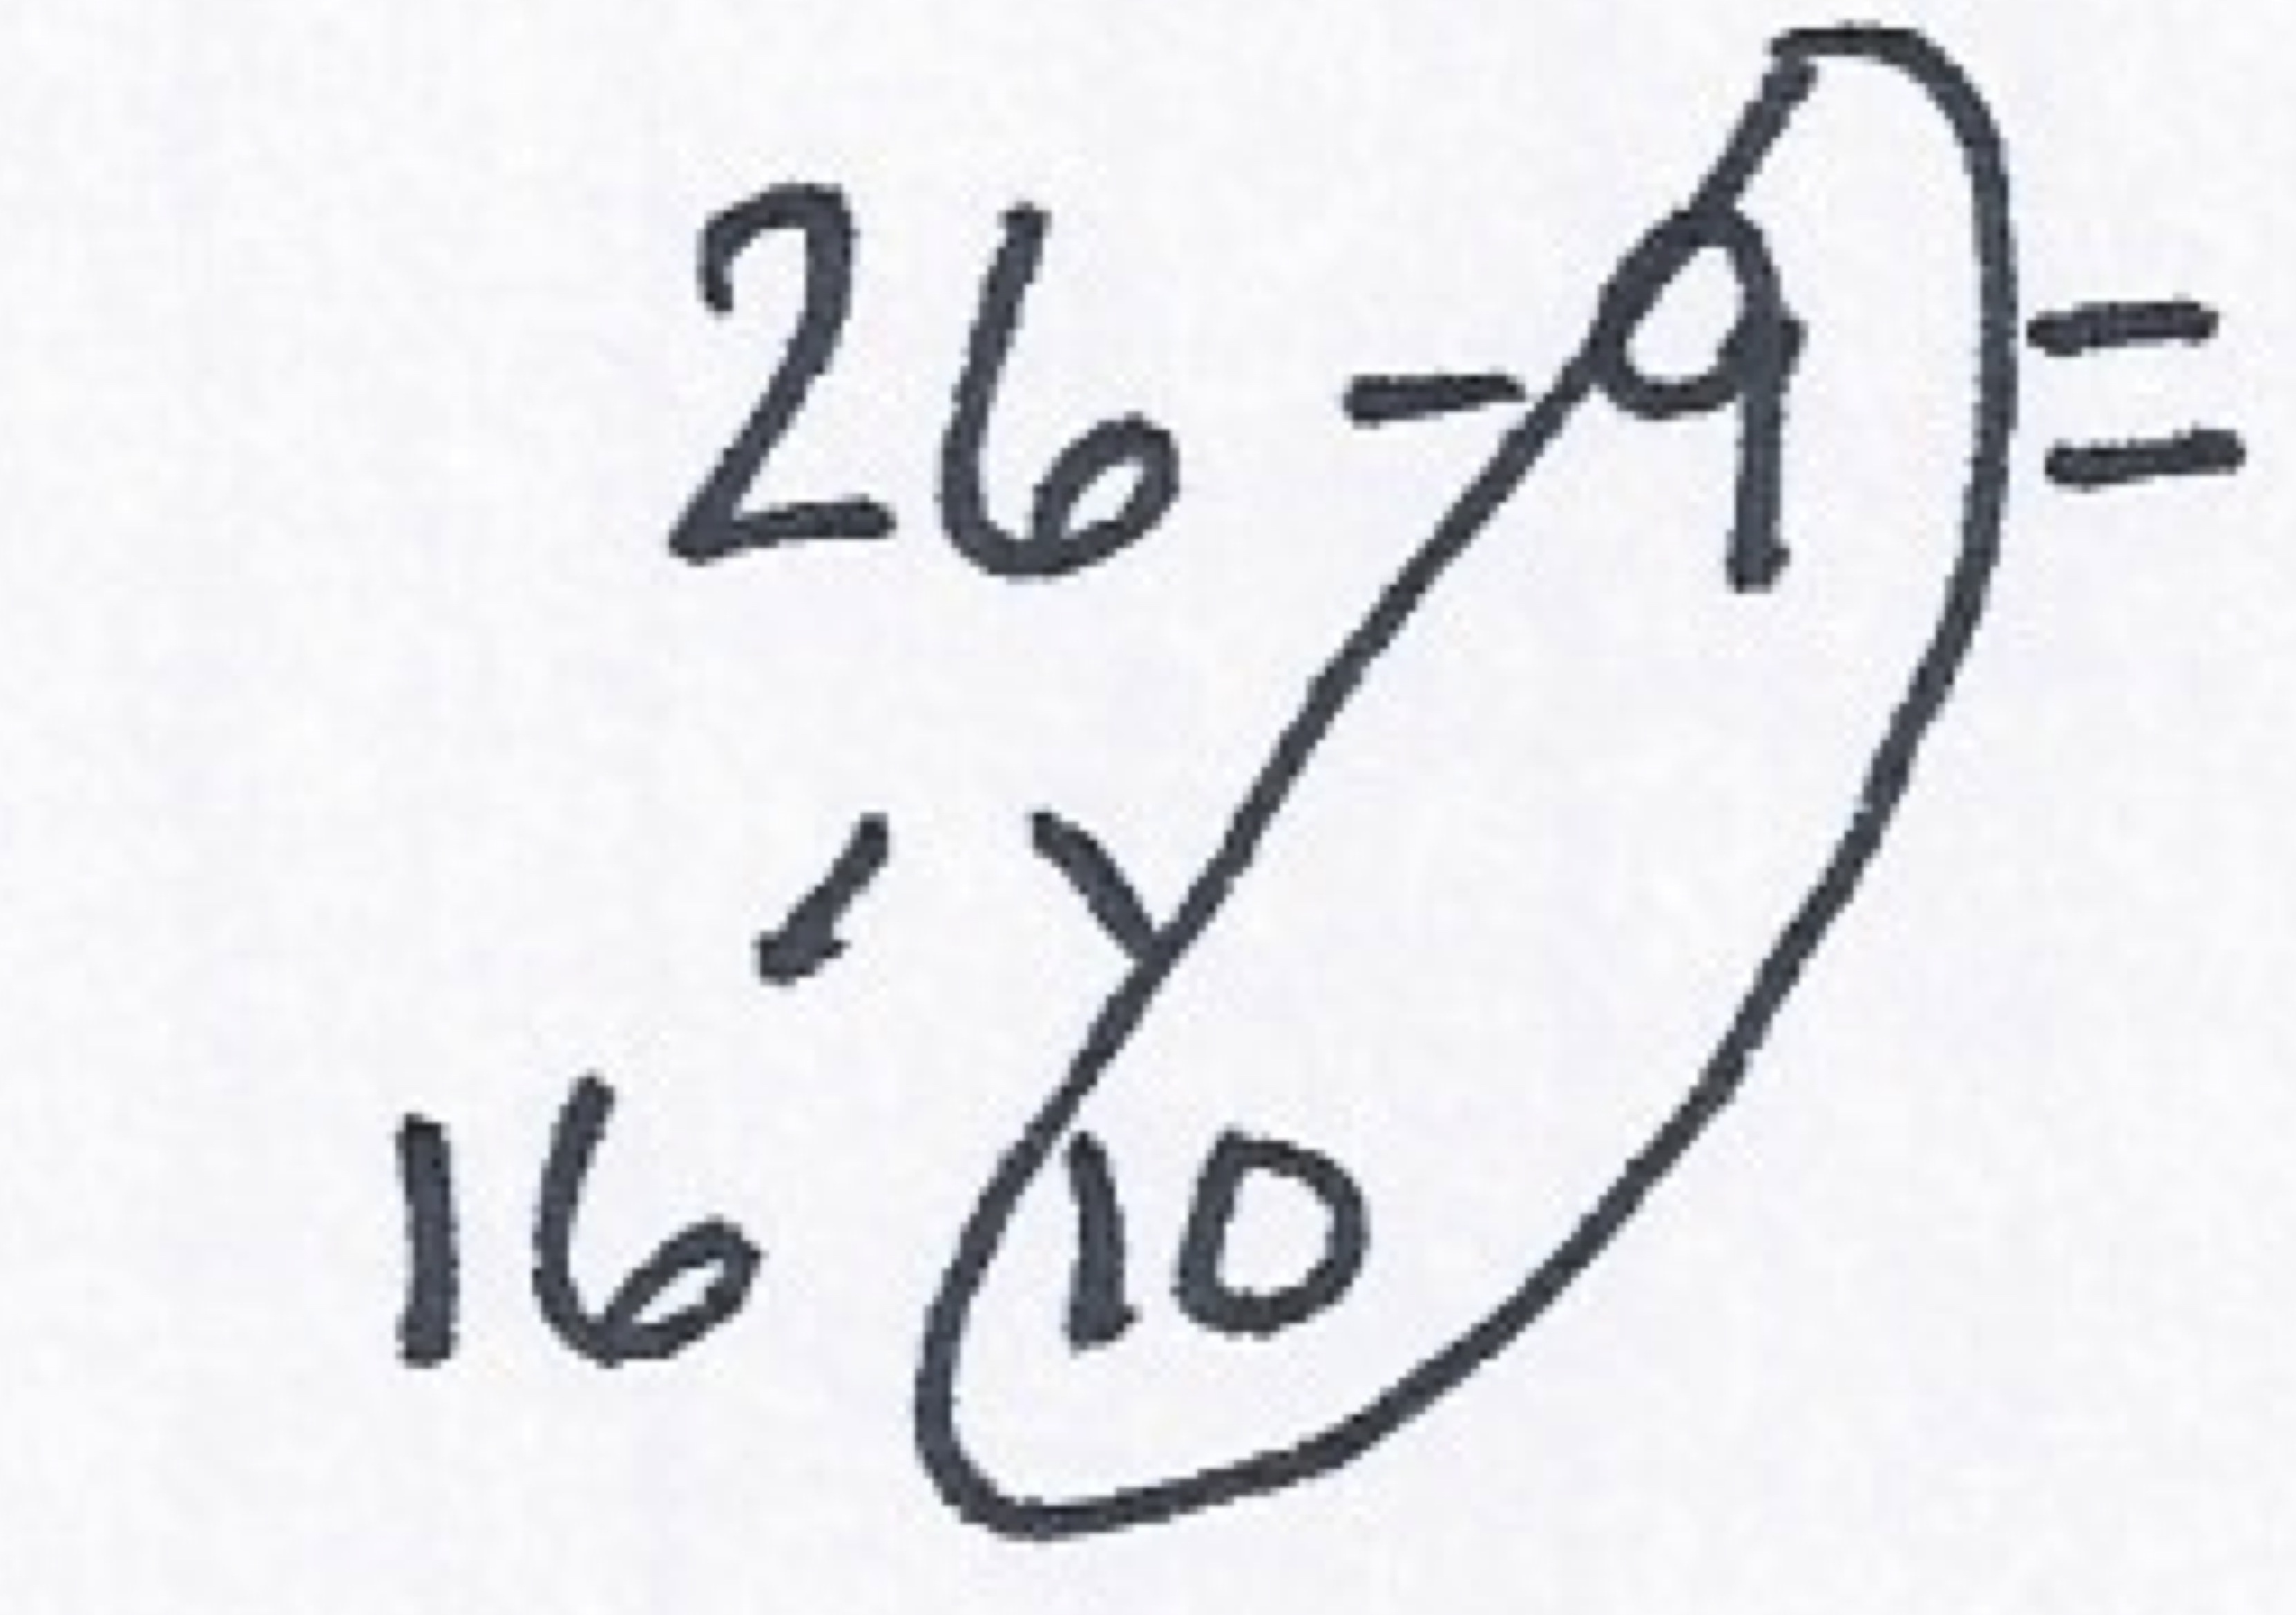 26 - 9 =
16 10